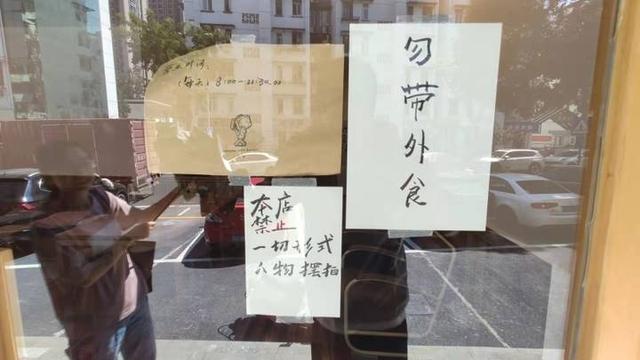 营业时间:
(每天) 8:00—
勿带外食
本店
禁止
一切形式
人物摆拍